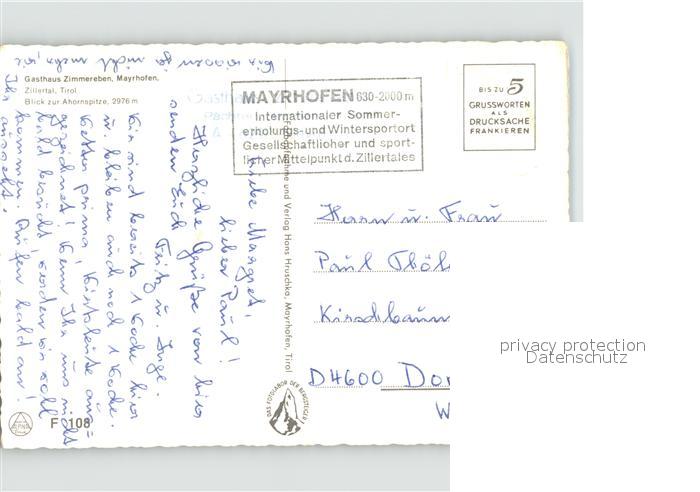 Gasthaus Zimmereben, Mayrhofen,
Zillertal, Tirol
Blick zur Ahornspitze, 2976 m
MAYRHOFEN 630-2000m
Internationaler Sommer-
erholungs- und Wintersportort
Gesellschaftlicher und sport-
licher Mittelpunkt d. Zillertales
BIS ZU 5
GRUSSWORTEN
ALS
DRUCKSACHE
FRANKIEREN
Liebe Margret,
lieber Paul!
Herzliche Grüße von hier
senden Euch
Fritz u. Inge.
Wir sind bereits 1 Woche hier
u. bleiben auch noch 1 Woche.
Wetter prima! Wirtsleute aus=
gezeichnet! Wenn Ihr uns nicht
bald besucht, werden wir wohl
kommen. Rufen bald an!
Wir wissen ja nicht mehr, wie
Ihr ausseht.
und Verlag Hans Hruschka, Mayrhofen, Tirol
Herrn u. Frau
Paul
Kirschbaum
D4600 Dor
W
DAS FOTOLABOR DER BERGSTEIGER
F 108
privacy protection
Datenschutz